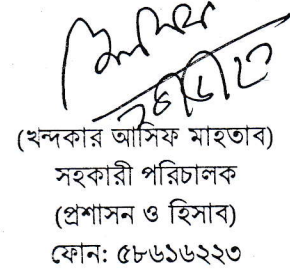 (খন্দকার আসিফ মাহতাব)
সহকারী পরিচালক
(প্রশাসন ও হিসাব)
ফোন: ৫৮৬১৬২২৩